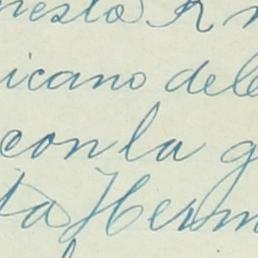 nesto R
icano del
con la g
ta Herm